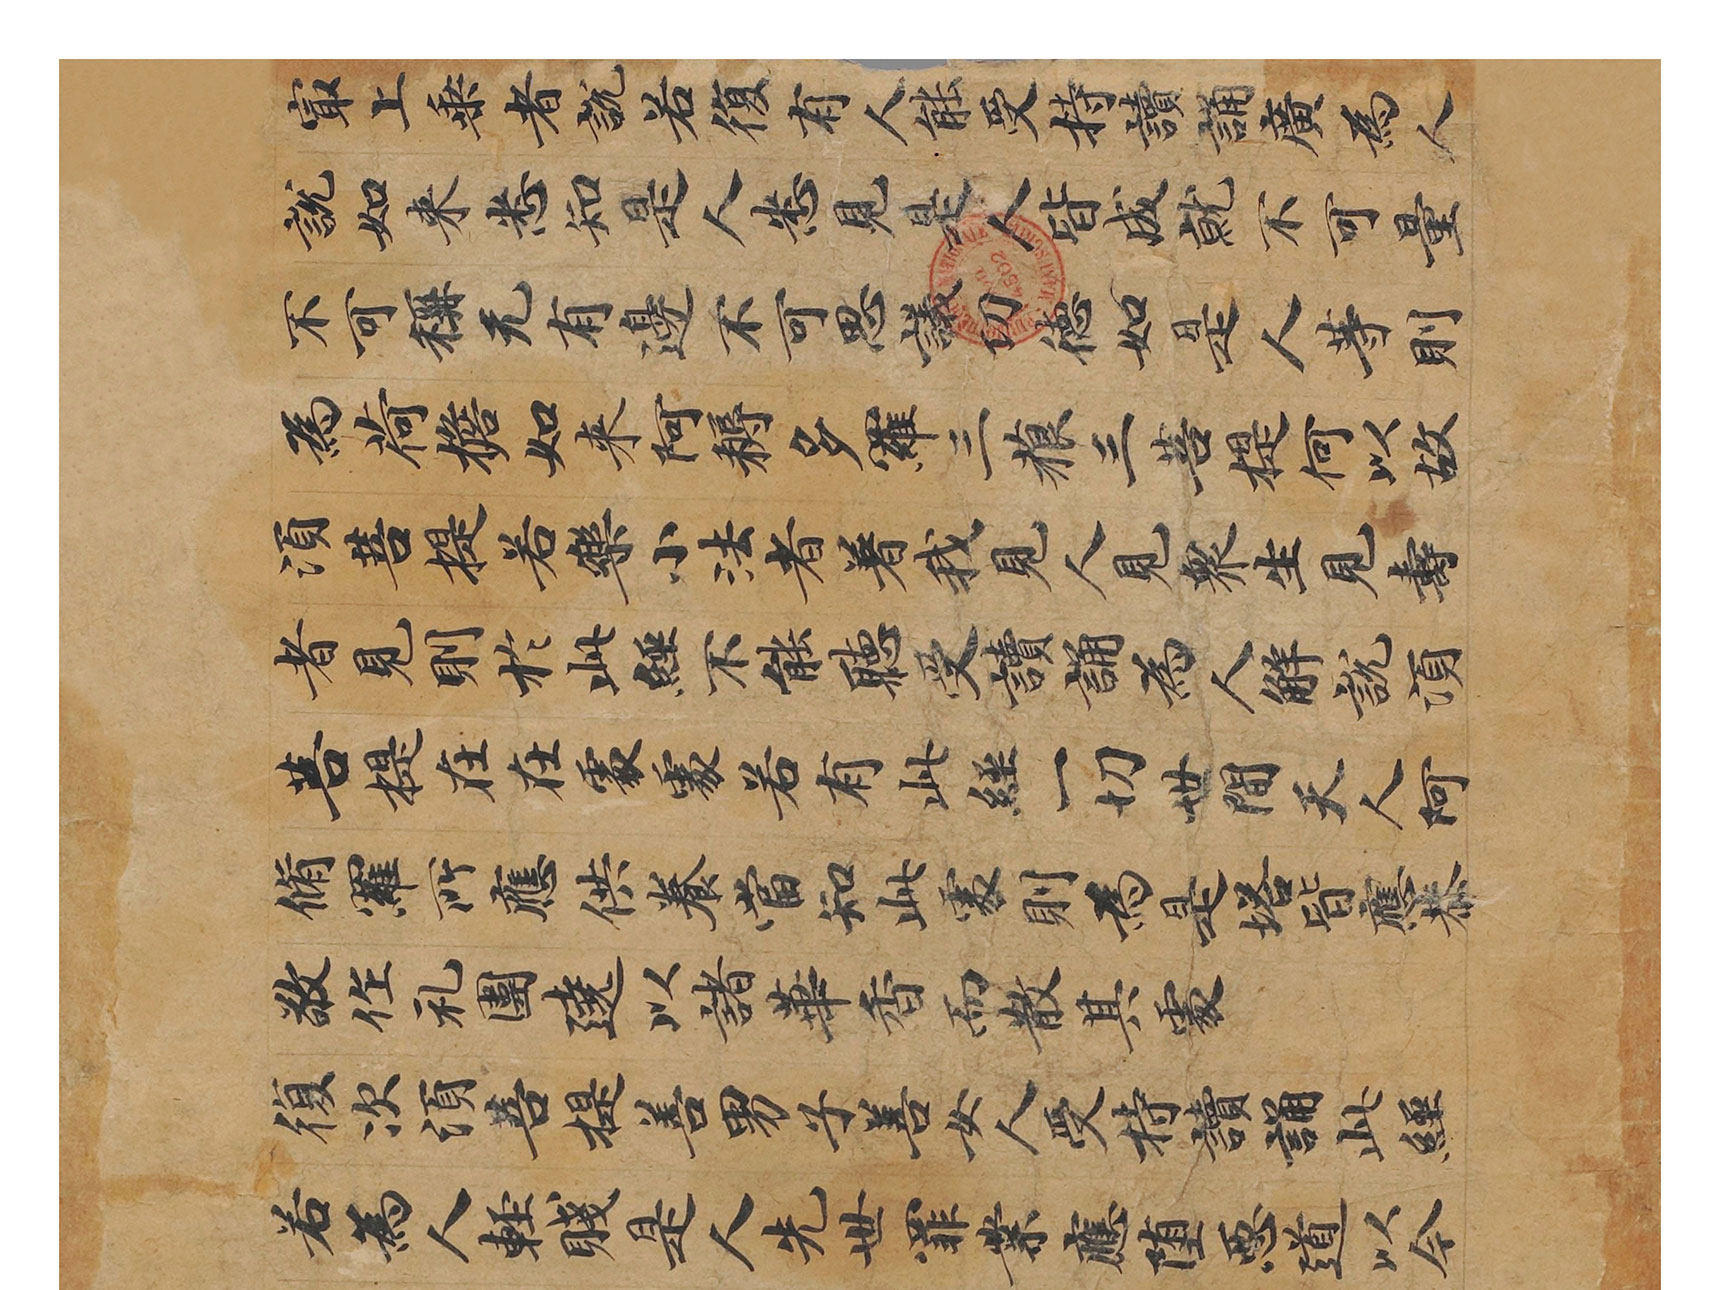 㝡上乘者說若復有人能受持讀誦廣為人
說如来悉知是人悉見是人皆成就不可量
不可稱无有邊不可思議功德如是人等則
為荷擔如来阿耨多羅三藐三菩提何以故
湏菩提若樂小法者著我見人見衆生見壽
者見則於此經不能聽受讀誦為人解說湏
菩提在在處處若有此經一切世間天人阿
脩羅所應供養當知此處則為是塔皆應恭
敬作礼圍遶以諸華香而散其處
復次湏菩提善男子善女人受持讀誦此經
若為人輕賤是人先世罪業應墮惡道以今